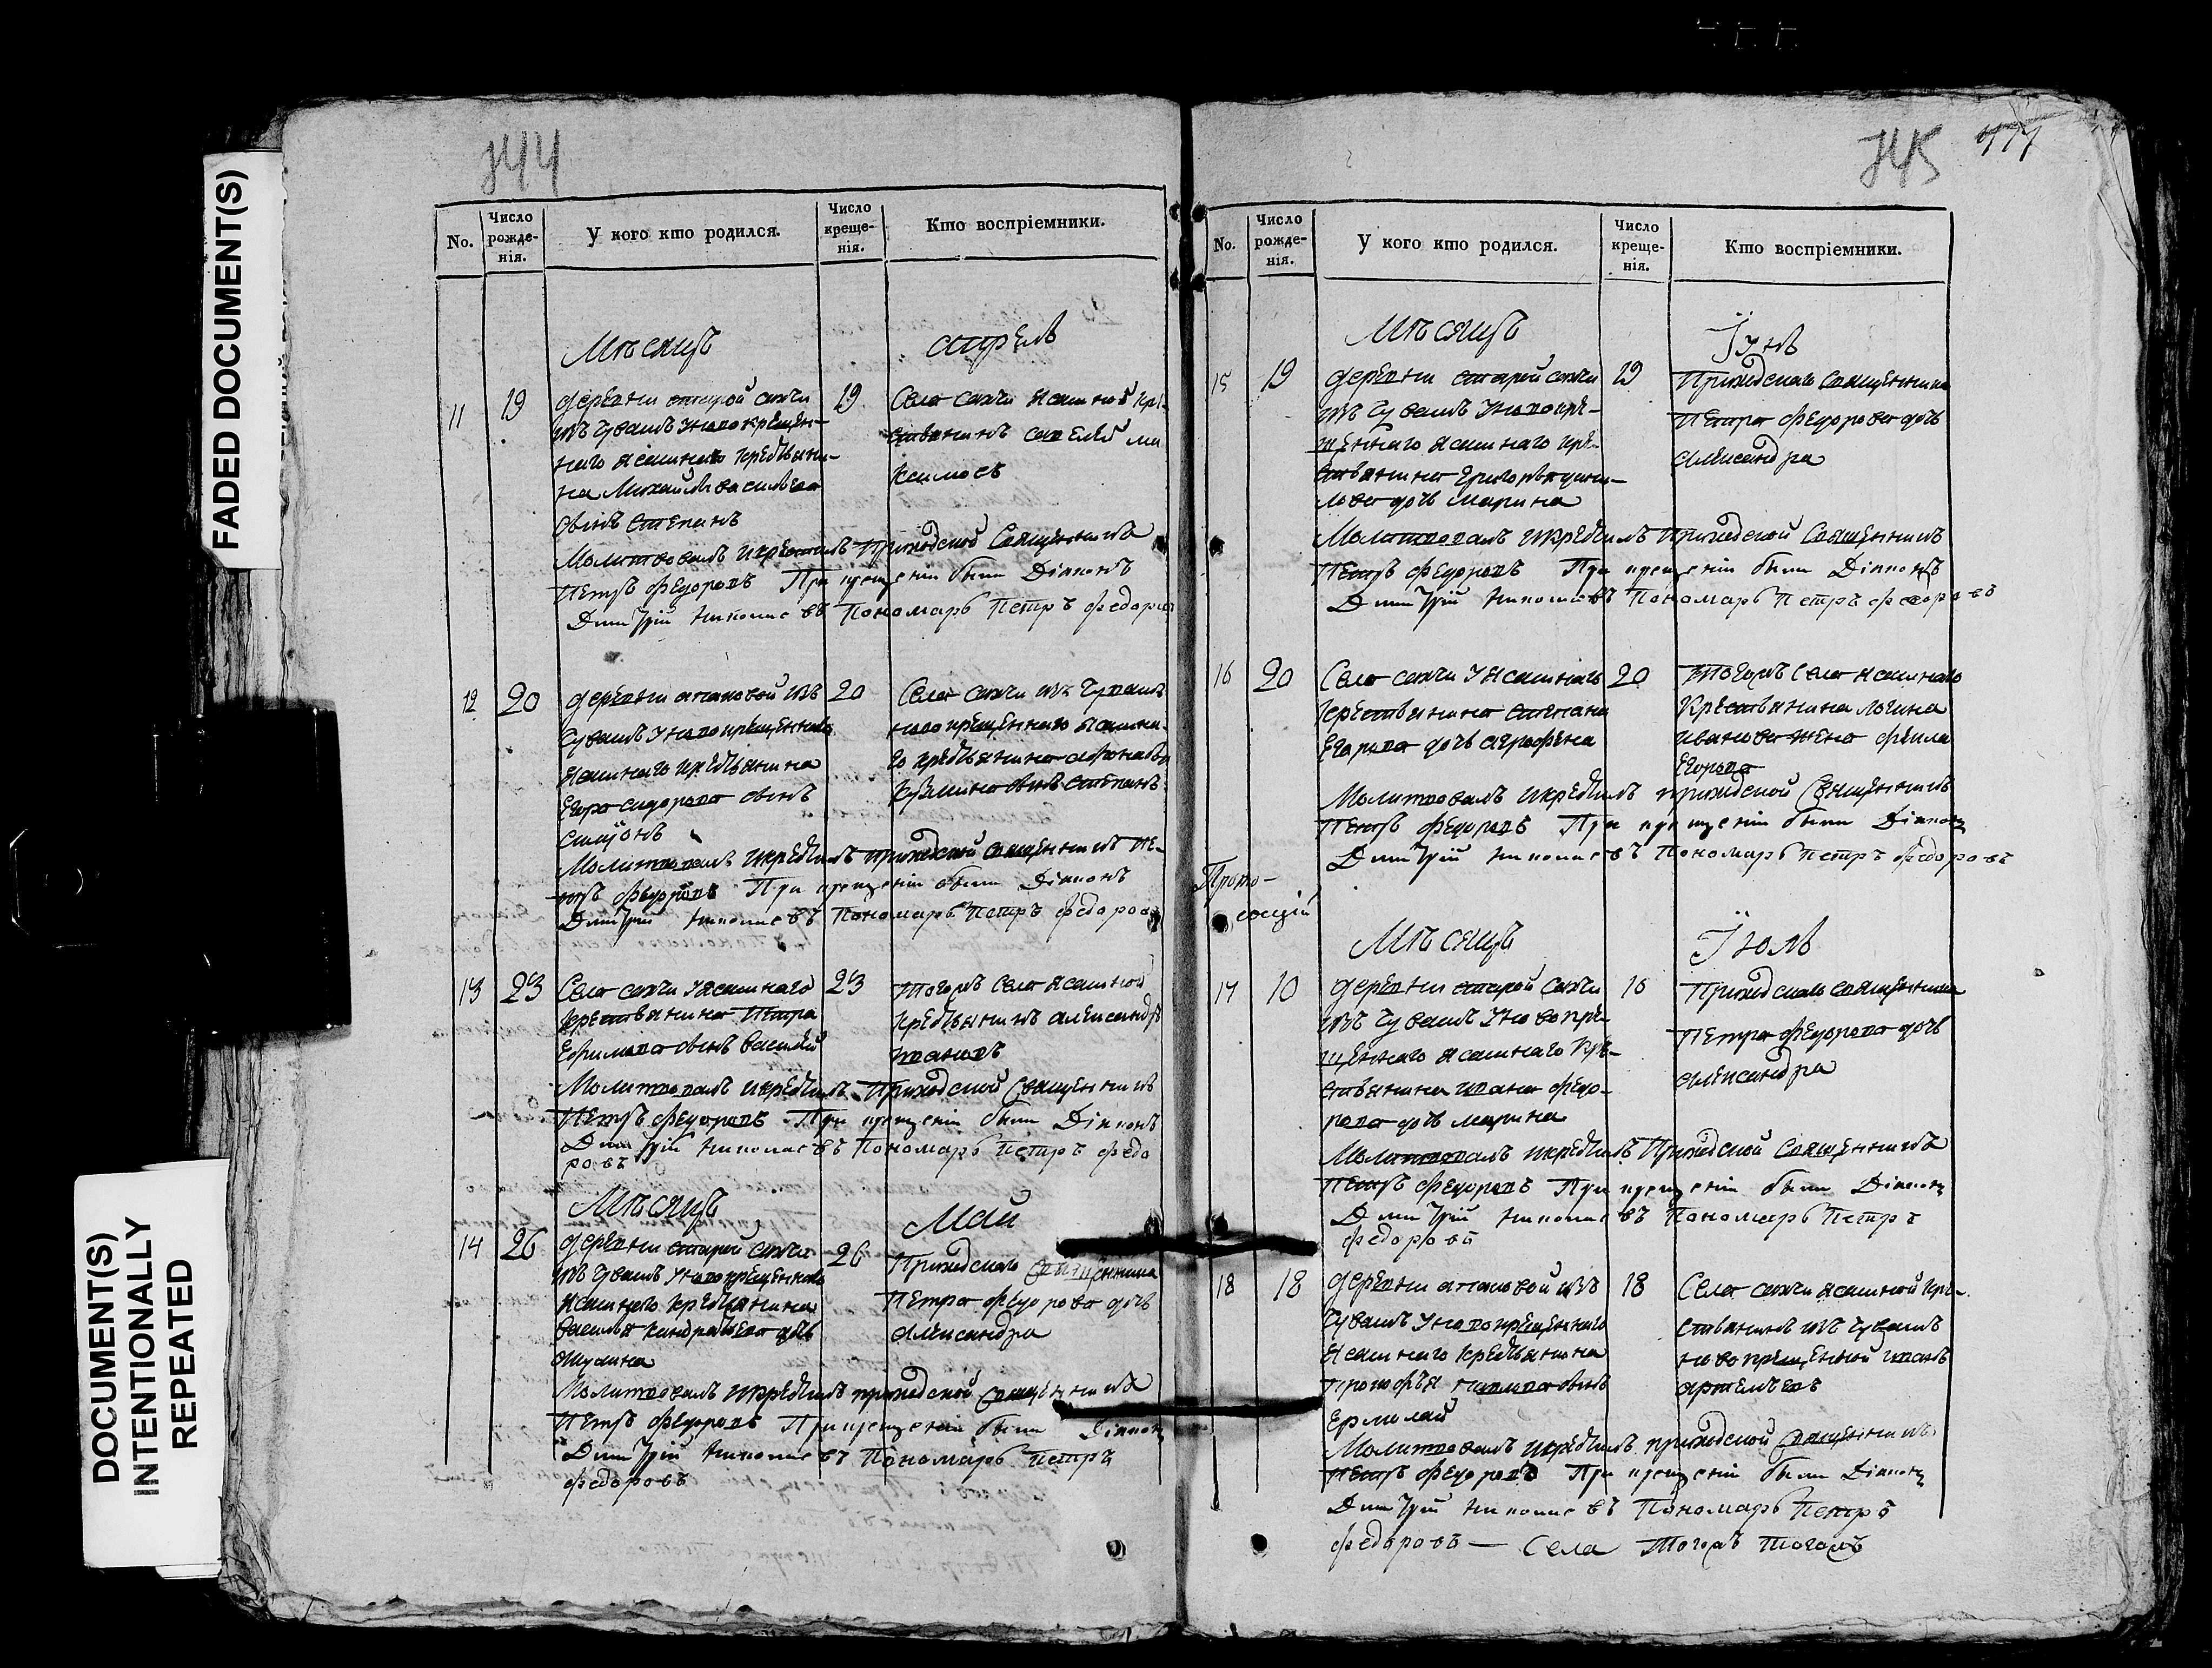 FADED DOCUMENT(S)
DOCUMENT(S)
INTENTIONALLY
REPEATED
No.
Число рожде-нія.
У кого кто родился.
Число креще-нія.
Кто воспріемники.
Мѣсяцъ
апрель
11
19
деревни старой сахчи
изъ Чувашъ Уновокрещен-
наго ясашнаго крестьяни-
на Михайлы васильева
сынъ Степанъ
19
Села сахчи Ясашной кре-
стьянинъ савелей ма
ксимовъ
Молитвовалъ икрестилъ Приходской Священникъ
Петръ Федоровъ При крещеніи были Діаконъ
Димитрій Николаевъ Пономарь Петръ Федоровъ
12
20
деревни аппаковой изъ
Чувашъ Уновокрещеннаго
Ясашнаго крестьянина
Егора сидорова сынъ
Симионъ
20
Села сахчи изъ Чувашъ
новокрещеннаго Ясашна-
го крестьянина афонасья
Кузмина сынъ Степанъ
Молитвовалъ икрестилъ приходской Священникъ Пе-
тръ Федоровъ При крещеніи были Діаконъ
Димитрій Николаевъ Пономарь Петръ Федоровъ
13
23
Села сахчи Уясашнаго
крестьянина Петра
Ефимова сынъ Василей
23
Тогожъ Села Ясашной
крестьянинъ александръ
ивановъ
Молитвовалъ икрестилъ Приходской Священникъ
Петръ Федоровъ При крещеніи были Діаконъ
Димитрій Николаевъ Пономарь Петръ Федо
ровъ
Мѣсяцъ
Май
14
26
деревни старой сахчи
изъ Чувашъ Уновокрещеннаго
Ясашнаго крестьянина
василья кандратьева дочь
Акулина
26
Приходскаго Священника
Петра Федорова дочь
александра
Молитвовалъ икрестилъ приходской Священникъ
Петръ Федоровъ При крещеніи были Діаконъ
Димитрій Николаевъ Пономарь Петръ
Федоровъ
No.
Число рожде-нія.
У кого кто родился.
Число креще-нія.
Кто воспріемники.
Мѣсяцъ
Іунь
15
19
деревни старой сахчи
изъ Чувашъ Уновокре-
щеннаго Ясашнаго кре-
стьянина Григорья
дочь Марина
19
Приходскаго Священника
Петра Федорова дочь
александра
Молитвовалъ икрестилъ Приходской Священникъ
Петръ Федоровъ При крещеніи были Діаконъ
Димитрій Николаевъ Пономарь Петръ Федоровъ
16
20
Села сахчи Уясашнаго
крестьянина Степана
Егорова дочь агрофена
20
Тогожъ Села ясашнаго
Крестьянина логина
иванова жена
Егорова
Молитвовалъ икрестилъ приходской Священникъ
Петръ Федоровъ При крещеніи были Діаконъ
Димитрій Николаевъ Пономарь Петръ Федоровъ
Мѣсяцъ
Іюль
17
10
деревни старой сахчи
изъ Чувашъ Уновокре-
щеннаго ясашнаго Кре-
стьянина ивана Федо-
рова дочь марина
10
Приходскаго Священника
Петра Федорова дочь
александра
Молитвовалъ икрестилъ Приходской Священникъ
Петръ Федоровъ При крещеніи были Діаконъ
Димитрій Николаевъ Пономарь Петръ
Федоровъ
18
18
деревни аппаковой изъ
Чувашъ Уновокрещеннаго
Ясашнаго крестьянина
прокофья сынъ
Ермолай
18
Села сахчи ясашной кре-
стьянинъ изъ Чувашъ
новокрещенной иванъ
артемьевъ
Молитвовалъ икрестилъ приходской Священникъ
Петръ Федоровъ При крещеніи были Діаконъ
Димитрій Николаевъ Пономарь Петръ
Федоровъ — Села Тогожъ